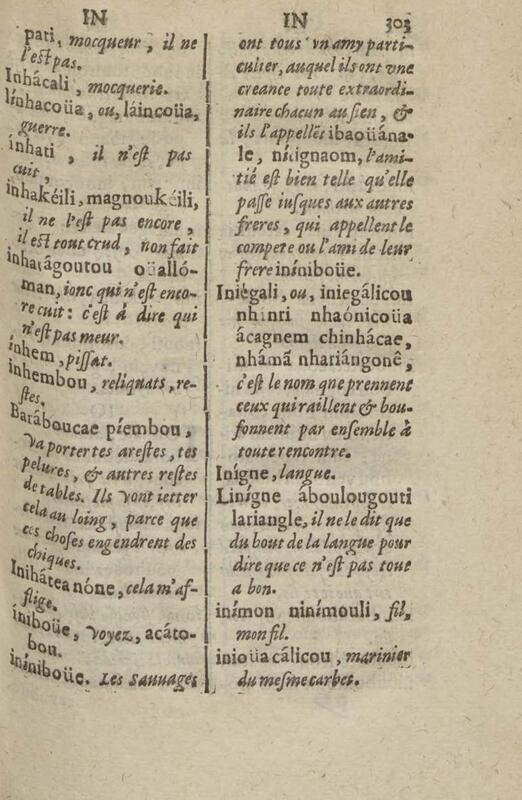 IN
IN 303
pati, mocqueur, il ne
l'est pas.
Inhácali, mocquerie.
linhacoüa, ou, láincoüa,
guerre.
inhati, il n'est pas
cuit,
inhakéili, magnoukéili,
il ne l'est pas encore,
il est tout crud, non fait
inhatágoutou oüalló-
man, ionc qui n'est enco-
re cuit: c'est à dire qui
n'est pas meur.
inhem, pissat.
inhembou, reliquats, re-
stes.
Baráboucae píembou,
va porter tes arestes, tes
pelures, & autres restes
de tables. Ils vont ietter
cela au loing, parce que
ces choses engendrent des
chiques.
Inihátea nóne, cela m'af-
flige.
iniboüe, voyez, acáto-
bou.
iníniboüe. Les Sauuages
ont tous vn amy parti-
culier, auquel ils ont vne
creance toute extraordi-
naire chacun au sien, &
ils l'appellẽt ibaoüána-
le, nitignaom, l'ami-
tié est bien telle qu'elle
passe iusques aux autres
freres, qui appellent le
compete ou l'ami de leur
frere iníniboüe.
Iniégali, ou, iniegálicou
nhinri nhaónicoüa
ácagnem chinhácae,
nhámã nhariángonê,
c'est le nom qne prennent
ceux qui raillent & bou-
fonnent par ensemble à
toute rencontre.
Inígne, langue.
Linígne áboulougouti
lariangle, il ne le dit que
du bout de la langue pour
dire que ce n'est pas tout
a bon.
inímon ninímouli, fil,
mon fil.
inioüacálicou, marinier
du mesme carbet.